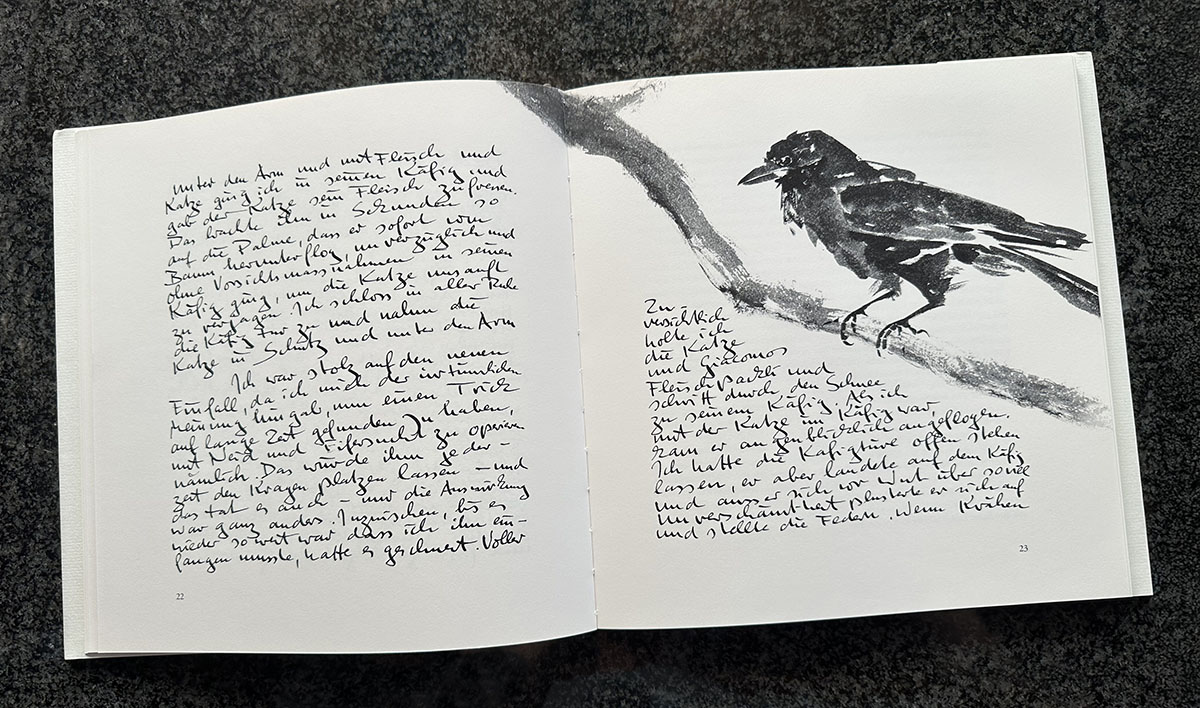 unter den Arm und mit Fleisch und
Katze ging ich in seinen Käfig und
gab der Katze sein Fleisch zu fressen.
Das brachte ihn in Sekunden so
auf die Palme, dass er sofort vom
Baum herunterflog, unverzüglich und
ohne Vorsichtsmassnahmen in seinen
Käfig ging, um die Katze unsanft
zu verjagen. Ich schloss in aller Ruhe
die Käfig Tür zu und nahm die
Katze in Schutz und unter den Arm
Ich war stolz auf den neuen
Einfall, da ich mich der irrtümlichen
Meinung hingab, nun einen Trick
auf lange Zeit gefunden zu haben,
nämlich, mit Neid und Eifersucht zu operieren
Das würde ihm jeder-
zeit den Kragen platzen lassen – und
das tat es auch – nur die Auswirkung
war ganz anders. Inzwischen, bis es
wieder so weit war dass ich ihn ein-
fangen musste, hatte es geschneit. Voller
22
Zu
versichtlich
holte ich
die Katze
und Giacomos
Fleisch Päckli und
schritt durch den Schnee
zu seinem Käfig. Als ich
mit der Katze im Käfig war,
kam er augenblicklich angeflogen.
Ich hatte die Käfigtüre offen stehen
lassen, er aber landete auf dem Käfig
und ausser sich vor Wut über soviel
Unverschämtheit plusterte er sich auf
und stellte die Federn. Wenn Krähen
23